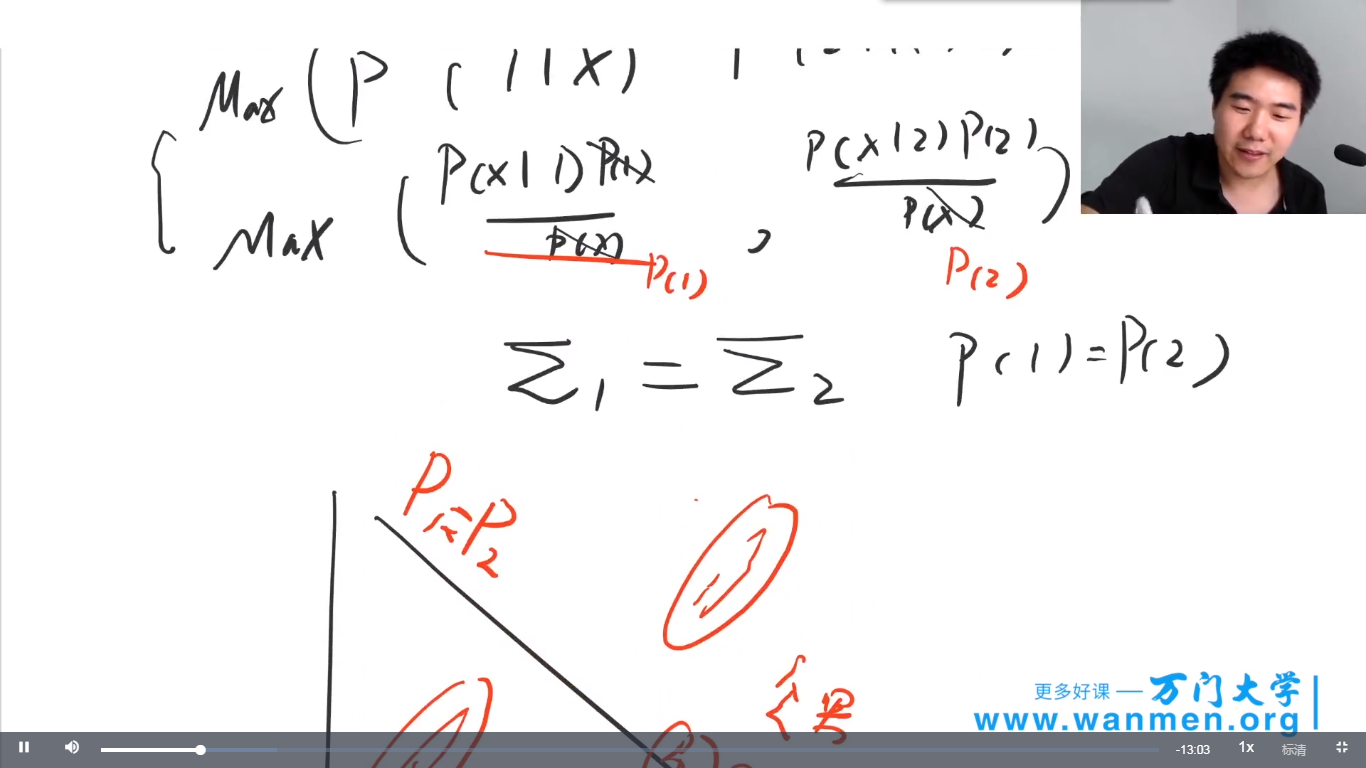 Max ( P ( 1 | X )
P(X|1) P(1) P(X|2) P(2)
Max ( P(X) , P(X) )
P(1) P(2)
Σ1 = Σ2 P(1) = P(2)
P1 = P2
男
更多好课 — 万门大学
www.wanmen.org
-13:03 1x 标清